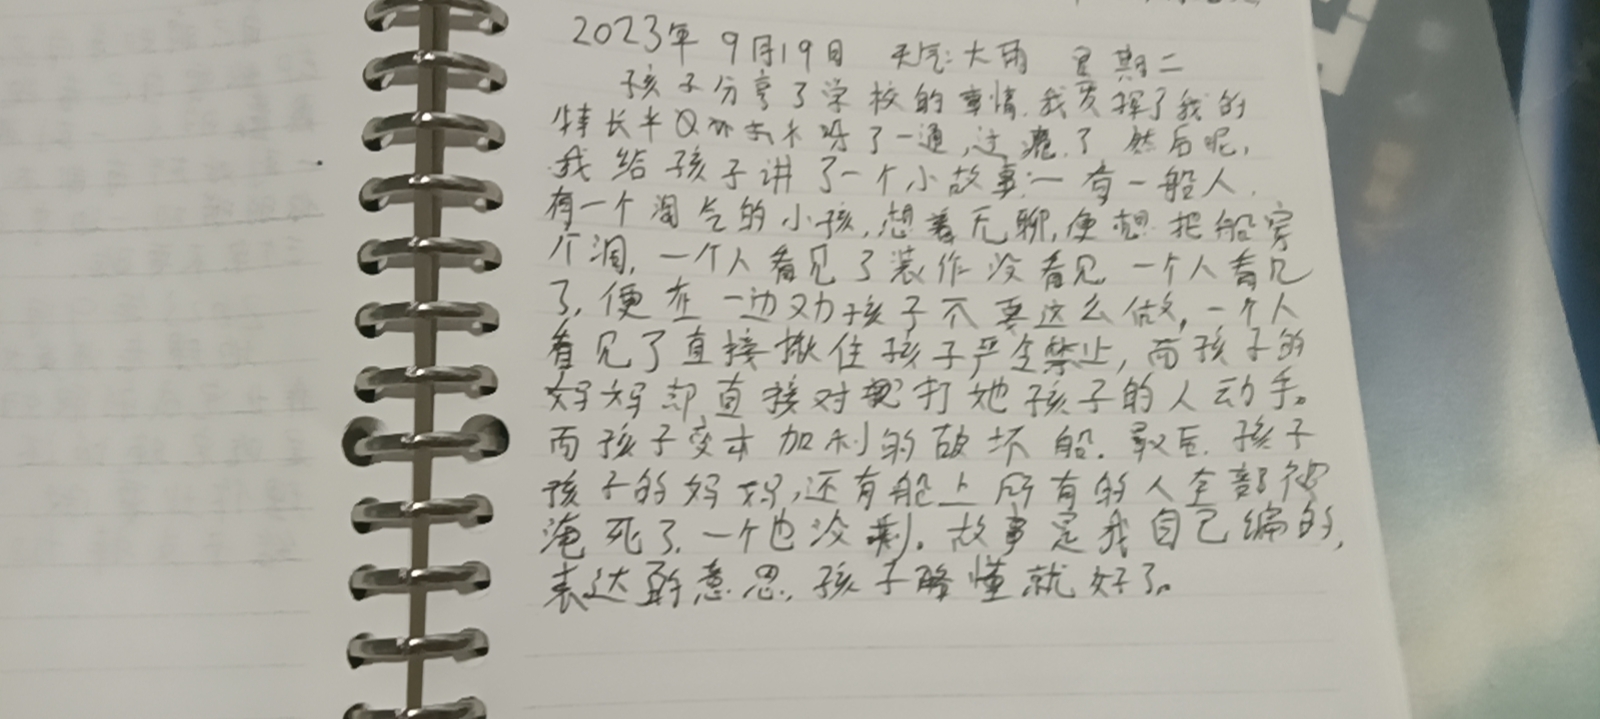 2023年 9月19日 天气:大雨 星期二
孩子分享了学校的事情.我发挥了我的
特长半Q 呀了一通,过瘾.了 然后呢,
我给孩子讲了一个小故事:一有一船人.
有一个淘气的小孩,想着无聊,便想把船穿
个洞,一个人看见了装作没看见 一个人看见
了,便在一边劝孩子不要这么做,一个人
看见了直接揪住孩子严令禁止,而孩子的
妈妈却直接对 打她孩子的人动手。
而孩子变本加利的破坏船.最后.孩子
孩子的妈妈,还有船上所有的人全部被
淹死了.一个也没剩。故事是我自己编的,
表达 意思.孩子 懂就好了。